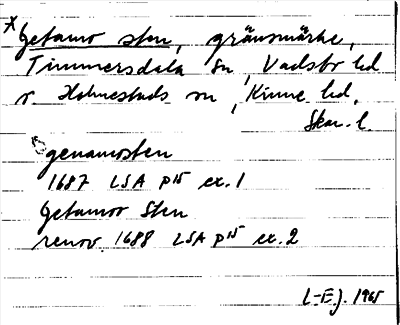 * Getamo sten, gränsmärke,
Timmersdala sn, Vadsbo hd
o. Holmestads sn, Kinne hd.
Skar. l.
genamosten
1687 LSA P15 ex. 1
Getamoo Sten
renov. 1688 LSA P15 ex. 2
L-E.J. 1965